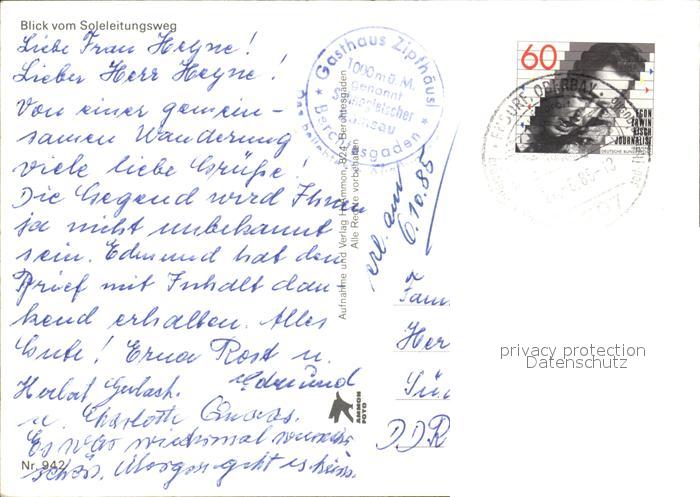 Blick vom Soleleitungsweg
Liebe Frau Heyne!
Lieber Herr Heyne!
Von einer gemein-
samen Wanderung
viele liebe Grüße!
Die Gegend wird Ihnen
ja nicht unbekannt
sein. Edmund hat den
Brief mit Inhalt dan-
kend erhalten. Alles
Gute! Erna Rost u.
Herbert Edmund
u. Charlotte
Es war
schön. Morgen geht es heim.
Nr. 942
Gasthaus Zipfhäusl
1000 m ü. M.
genannt
Ramsau
Berchtesgaden
Aufnahme und Verlag H. Ammon, 824 Berchtesgaden
Alle Rechte vorbehalten
AMMON
FOTO
erl. am
6.10.85
60
EGON
ERWIN
KISCH
JOURNALIST
DEUTSCHE BUNDESPOST
Fam.
Her
DDR
privacy protection
Datenschutz